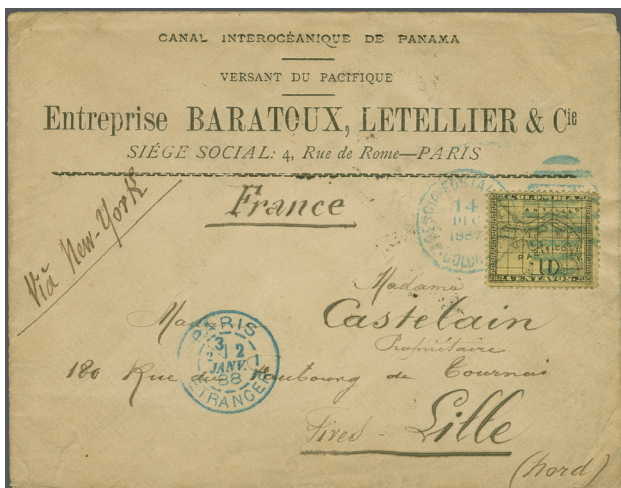 CANAL INTEROCÉANIQUE DE PANAMA
VERSANT DU PACIFIQUE
Entreprise BARATOUX, LETELLIER & Cie
SIÉGE SOCIAL: 4, Rue de Rome—PARIS
Viâ New-York
France
AGENCIA POSTAL
14
DIC
1887
COLON
COLOMBIA
10
CENTAVOS
Madame
Castelain
Propriétaire
180 Rue du Faubourg de Tournai
Lille
(Nord)
PARIS
3 2
JANV.
88
ETRANGER